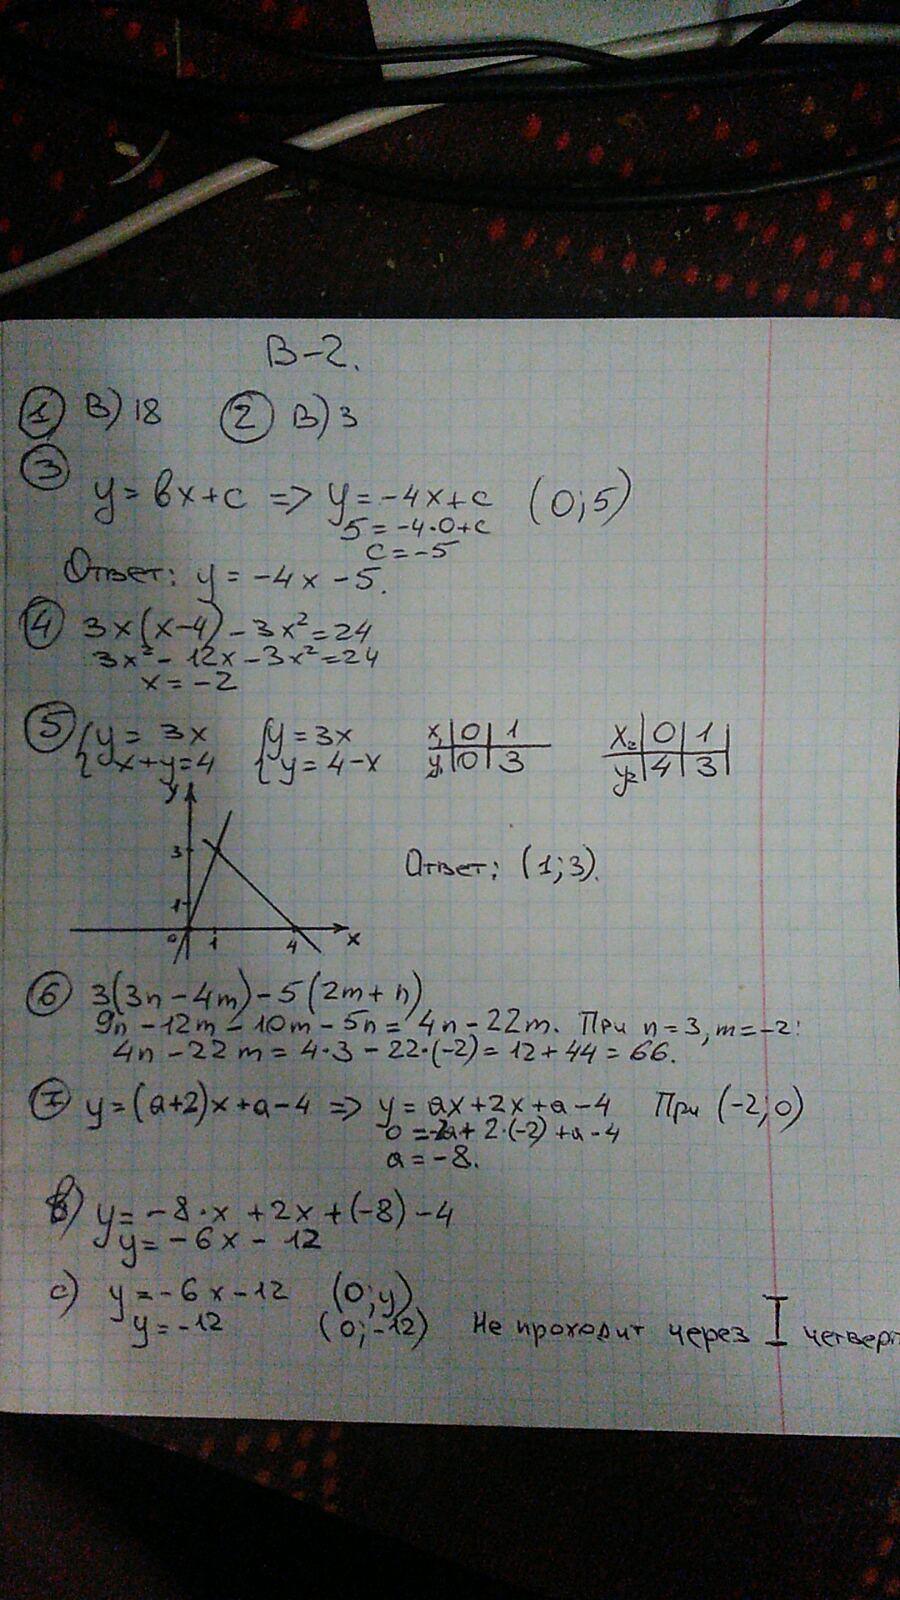 В-2.
1 В) 18 2 В) 3
3
y = bx + c => y = -4x + c (0;5)
5 = -4·0+c
c = -5
Ответ: y = -4x - 5.
4 3x(x-4) - 3x² = 24
3x² - 12x - 3x² = 24
x = -2
5 { y = 3x { y = 3x x₁ | 0 | 1 x₂ | 0 | 1
x + y = 4 y = 4 - x y₁ | 0 | 3 y₂ | 4 | 3
y
3
1
0 1 4 x
Ответ: (1;3).
6 3(3n - 4m) - 5(2m + n)
9n - 12m - 10m - 5n = 4n - 22m. При n = 3, m = -2:
4n - 22m = 4·3 - 22·(-2) = 12 + 44 = 66.
7 y = (a+2)x + a - 4 => y = ax + 2x + a - 4 При (-2;0)
0 = -2a + 2·(-2) + a - 4
a = -8.
b) y = -8·x + 2x + (-8) - 4
y = -6x - 12
c) y = -6x - 12 (0;y)
y = -12 (0;-12) Не проходит через I четверт